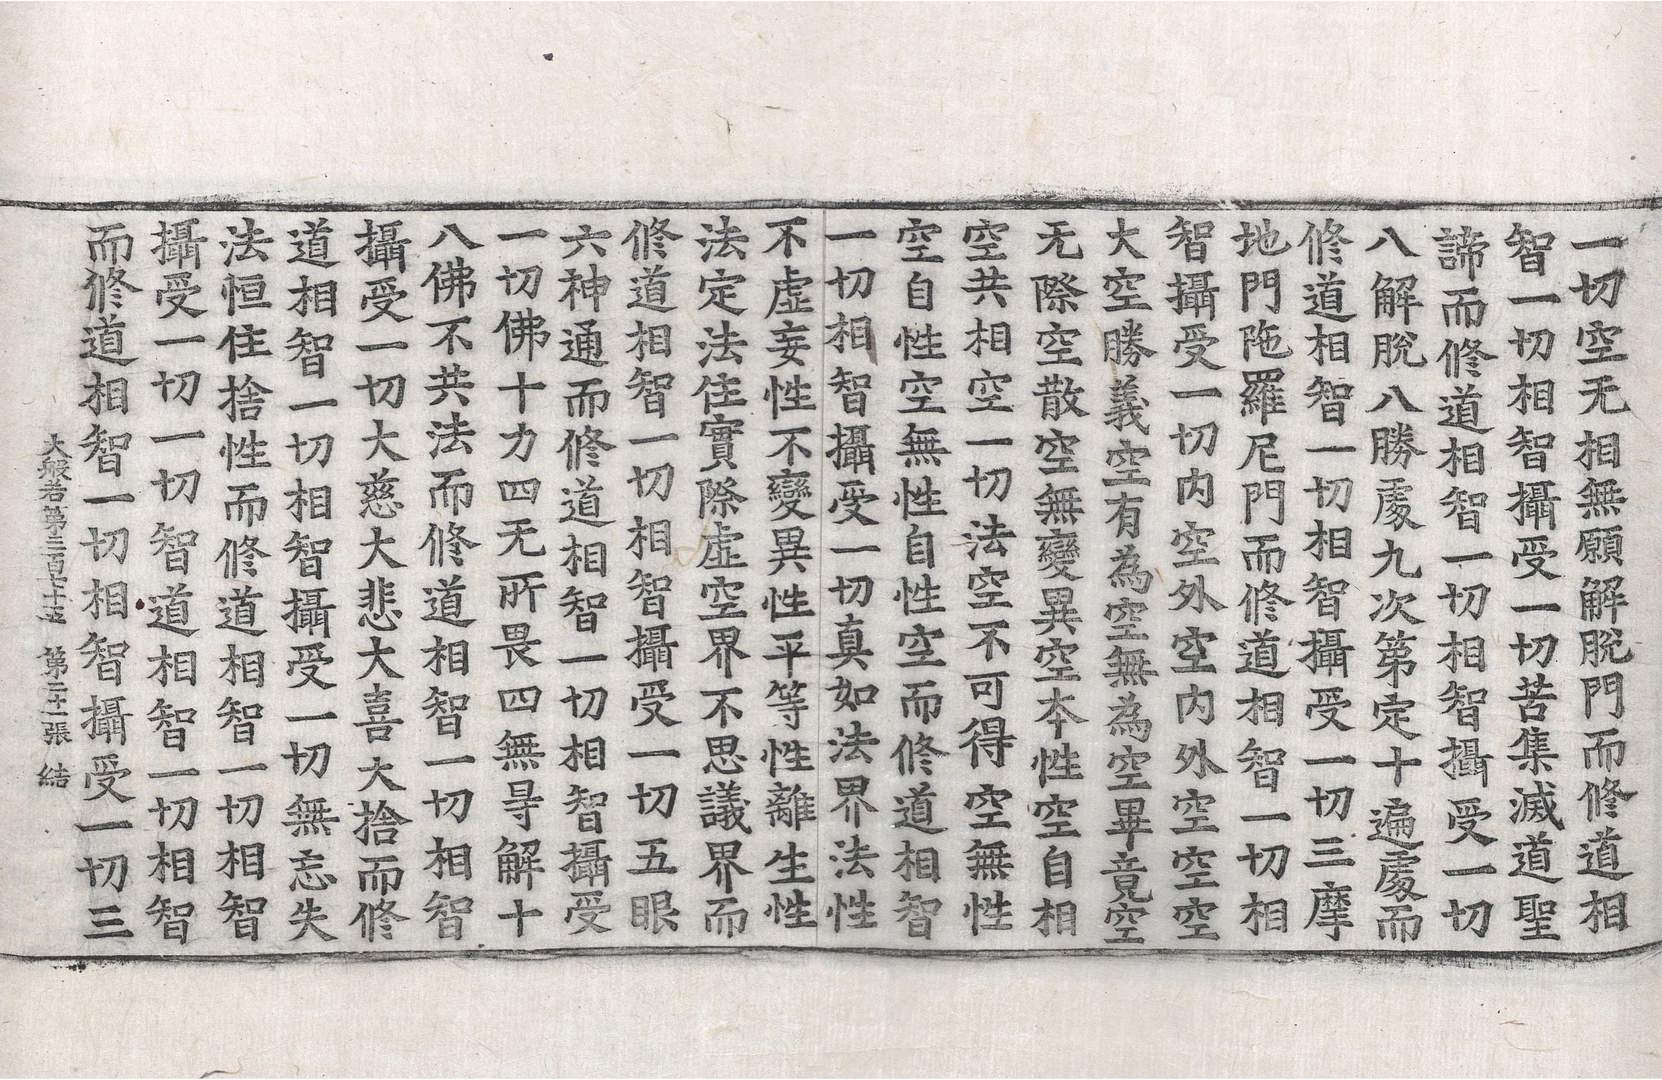 一切空无相無願解脫門而修道相
智一切相智攝受一切苦集滅道聖
諦而修道相智一切相智攝受一切
八解脫八勝處九次第定十遍處而
修道相智一切相智攝受一切三摩
地門陁羅尼門而修道相智一切相
智攝受一切內空外空內外空空空
大空勝義空有為空無為空畢竟空
无際空散空無變異空本性空自相
空共相空一切法空不可得空無性
空自性空無性自性空而修道相智
一切相智攝受一切真如法界法性
不虛妄性不變異性平等性離生性
法定法住實際虛空界不思議界而
修道相智一切相智攝受一切五眼
六神通而修道相智一切相智攝受
一切佛十力四无所畏四無㝵解十
八佛不共法而修道相智一切相智
攝受一切大慈大悲大喜大捨而修
道相智一切相智攝受一切無忘失
法恒住捨性而修道相智一切相智
攝受一切一切智道相智一切相智
而修道相智一切相智攝受一切三
大般若第三百七十五 第二十一張 結